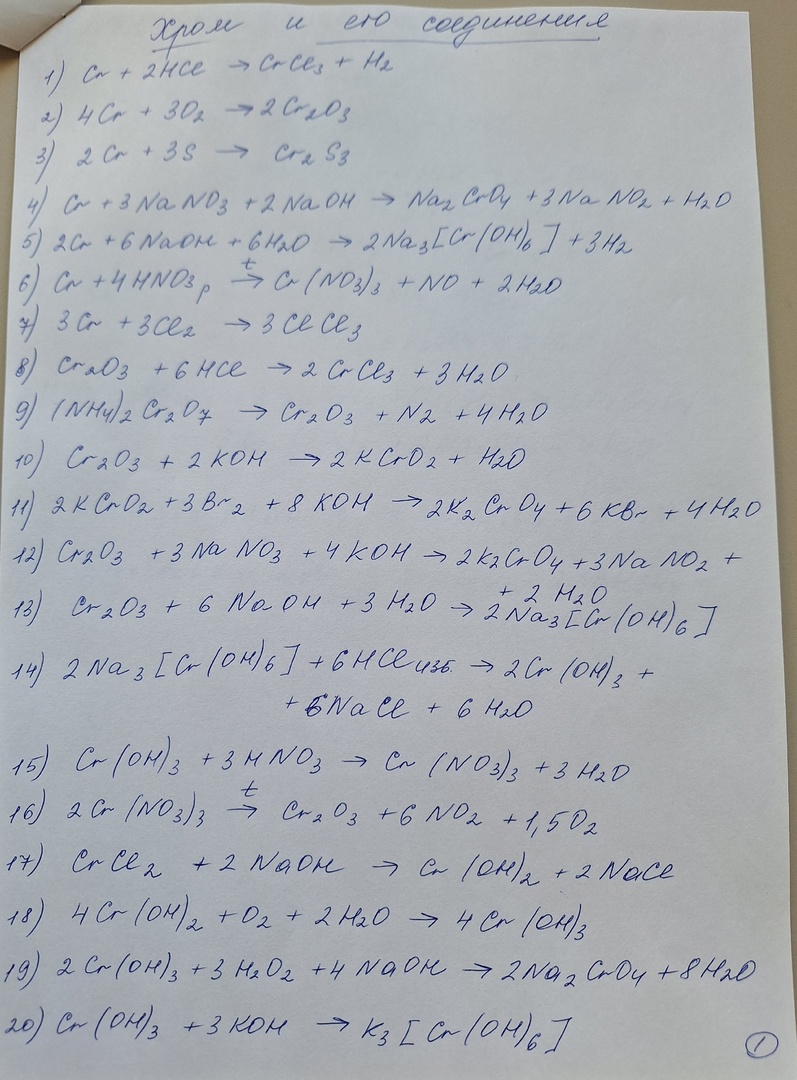 Хром и его соединения
1) Cr + 2HCl → CrCl3 + H2
2) 4Cr + 3O2 → 2Cr2O3
3) 2Cr + 3S → Cr2S3
4) Cr + 3NaNO3 + 2NaOH → Na2CrO4 + 3NaNO2 + H2O
5) 2Cr + 6NaOH + 6H2O → 2Na3[Cr(OH)6] + 3H2
6) Cr + 4HNO3 р t→ Cr(NO3)3 + NO + 2H2O
7) 3Cr + 3Cl2 → 3ClCl3
8) Cr2O3 + 6HCl → 2CrCl3 + 3H2O
9) (NH4)2Cr2O7 → Cr2O3 + N2 + 4H2O
10) Cr2O3 + 2KOH → 2KCrO2 + H2O
11) 2KCrO2 + 3Br2 + 8KOH → 2K2CrO4 + 6KBr + 4H2O
12) Cr2O3 + 3NaNO3 + 4KOH → 2K2CrO4 + 3NaNO2 +
+ 2H2O
13) Cr2O3 + 6NaOH + 3H2O → 2Na3[Cr(OH)6]
14) 2Na3[Cr(OH)6] + 6HCl изб. → 2Cr(OH)3 +
+ 6NaCl + 6H2O
15) Cr(OH)3 + 3HNO3 → Cr(NO3)3 + 3H2O
16) 2Cr(NO3)3 t→ Cr2O3 + 6NO2 + 1,5O2
17) CrCl2 + 2NaOH → Cr(OH)2 + 2NaCl
18) 4Cr(OH)2 + O2 + 2H2O → 4Cr(OH)3
19) 2Cr(OH)3 + 3H2O2 + 4NaOH → 2Na2CrO4 + 8H2O
20) Cr(OH)3 + 3KOH → K3[Cr(OH)6]
1